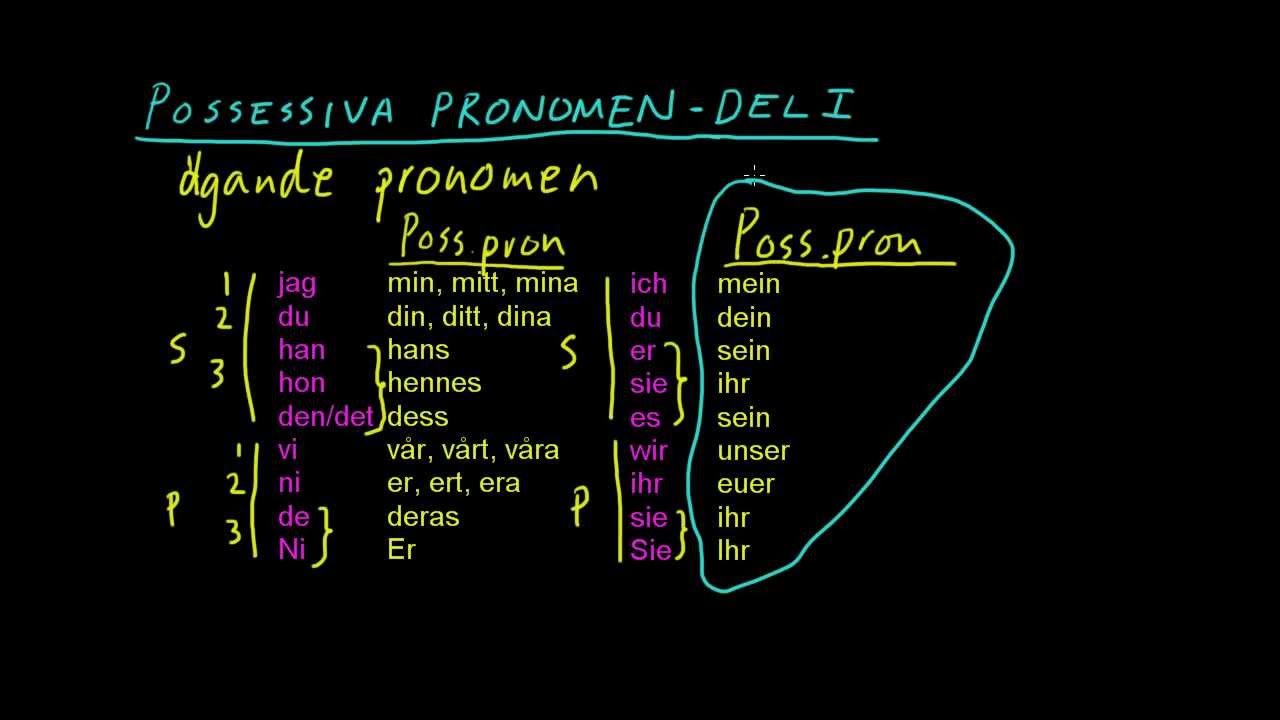 POSSESSIVA PRONOMEN - DEL I
ägande pronomen
Poss.pron Poss.pron
1 jag min, mitt, mina ich mein
2 du din, ditt, dina du dein
S han hans S er sein
3 hon hennes sie ihr
den/det dess es sein
1 vi vår, vårt, våra wir unser
2 ni er, ert, era ihr euer
P 3 de deras P sie ihr
Ni Er Sie Ihr